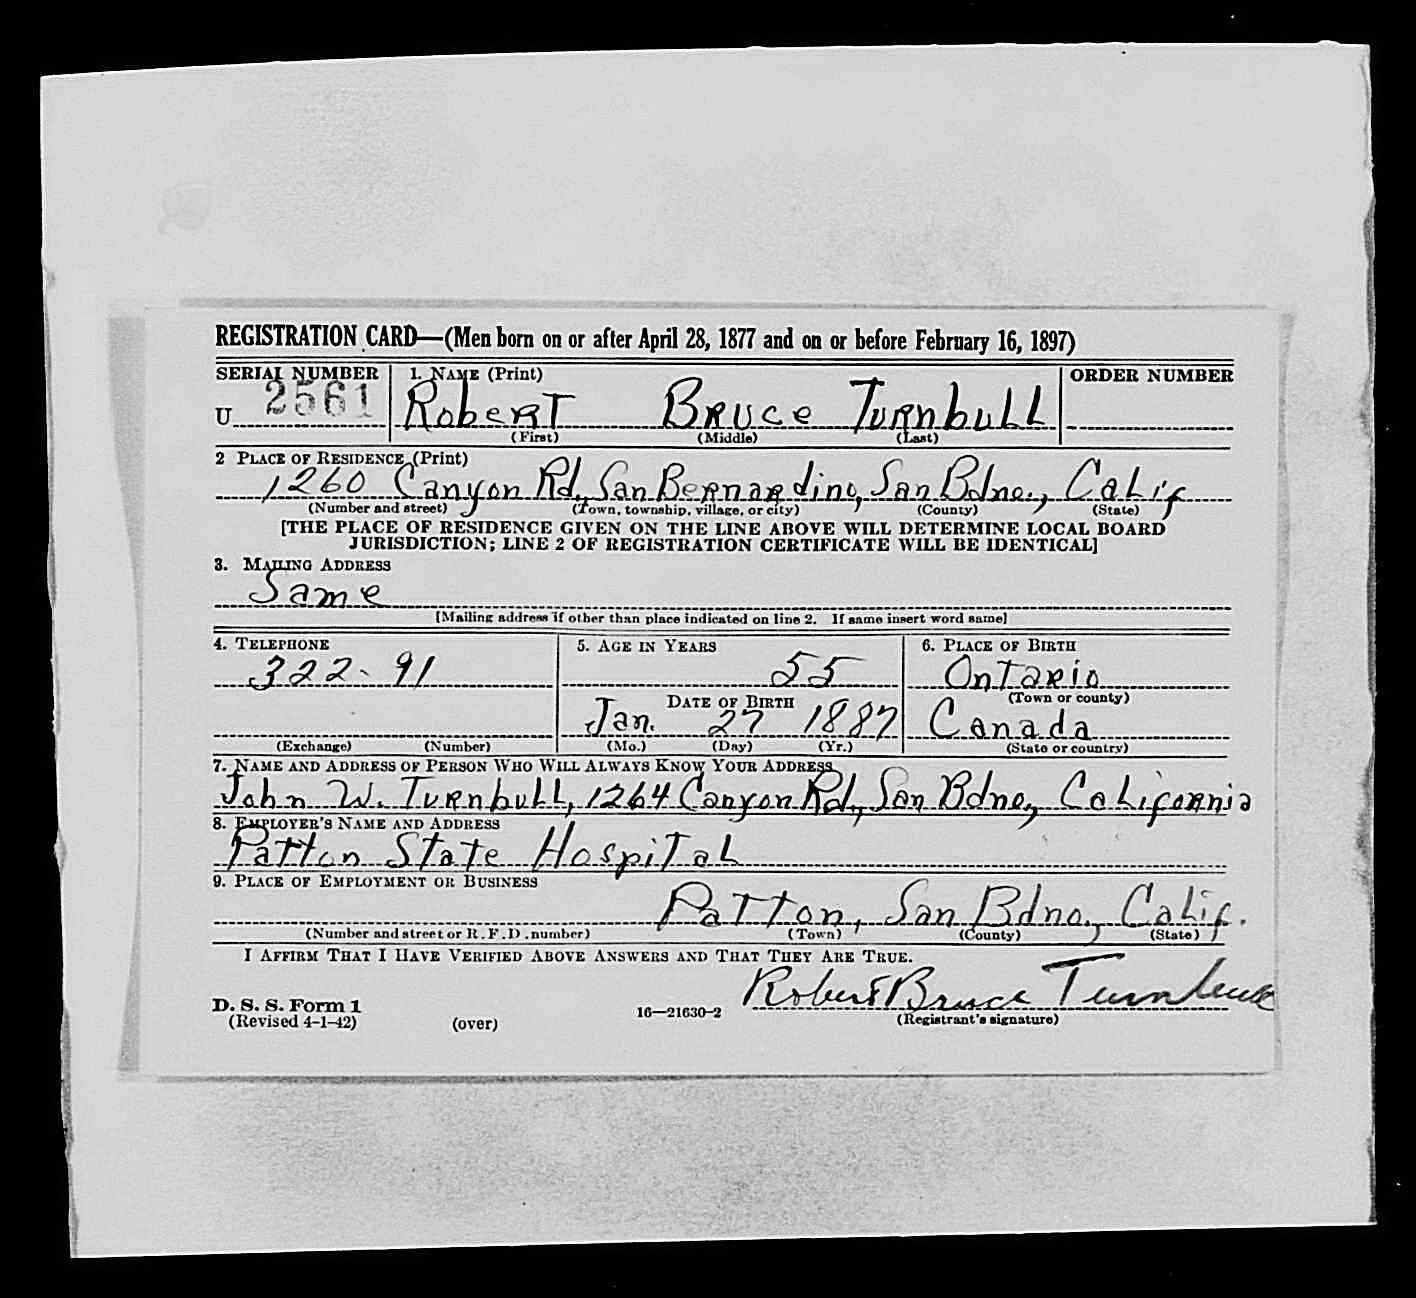 REGISTRATION CARD—(Men born on or after April 28, 1877 and on or before February 16, 1897)
SERIAL NUMBER 1. NAME (Print) ORDER NUMBER
U 2561 Robert Bruce Turnbull
(First) (Middle) (Last)
2 PLACE OF RESIDENCE (Print)
1260 Canyon Rd., San Bernardino, San Bdno., Calif
(Number and street) (Town, township, village, or city) (County) (State)
[THE PLACE OF RESIDENCE GIVEN ON THE LINE ABOVE WILL DETERMINE LOCAL BOARD
JURISDICTION; LINE 2 OF REGISTRATION CERTIFICATE WILL BE IDENTICAL]
3. MAILING ADDRESS
Same
[Mailing address if other than place indicated on line 2. If same insert word same]
4. TELEPHONE 5. AGE IN YEARS 6. PLACE OF BIRTH
322-91 55 Ontario
DATE OF BIRTH (Town or county)
Jan. 27 1887 Canada
(Exchange) (Number) (Mo.) (Day) (Yr.) (State or country)
7. NAME AND ADDRESS OF PERSON WHO WILL ALWAYS KNOW YOUR ADDRESS
John W. Turnbull, 1264 Canyon Rd., San Bdno., California
8. EMPLOYER'S NAME AND ADDRESS
Patton State Hospital
9. PLACE OF EMPLOYMENT OR BUSINESS
Patton, San Bdno., Calif.
(Number and street or R.F.D. number) (Town) (County) (State)
I AFFIRM THAT I HAVE VERIFIED ABOVE ANSWERS AND THAT THEY ARE TRUE.
Robert Bruce Turnbull
D. S. S. Form 1
(Revised 4-1-42) (over) 16—21630-2 (Registrant's signature)